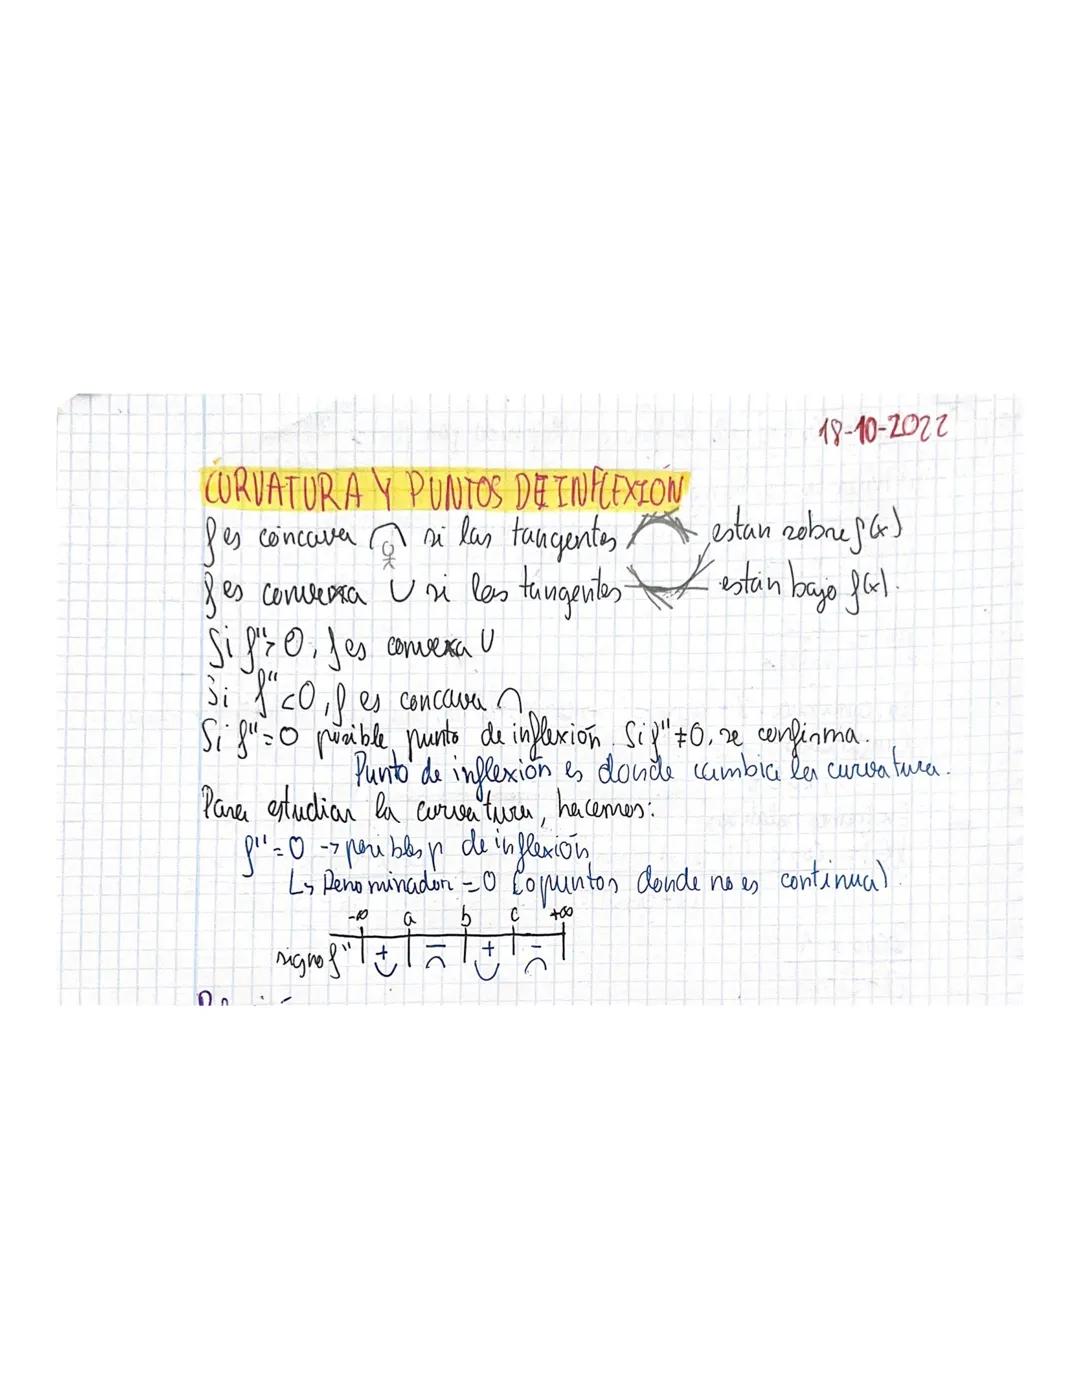 18-10-2022
CURVATURA Y PUNTOS DE INFLEXIÓN
f es cóncava ∩ si las tangentes estan sobre f(x)
f es convexa ∪ si las tangentes están bajo f(x).
Si f''>0, f es convexa ∪
Si f''<0, f es concava ∩
Si f''=0 posible punto de inflexión. Si f'''≠0, se confirma.
Punto de inflexión es donde cambia la curvatura.
Para estudiar la curvatura, hacemos:
f''=0 → posibles p de inflexión
↳ Denominador = 0 (o puntos donde no es continua).
-∞ a b c +∞
signo f'' + - + -
∪ ∩ ∪ ∩